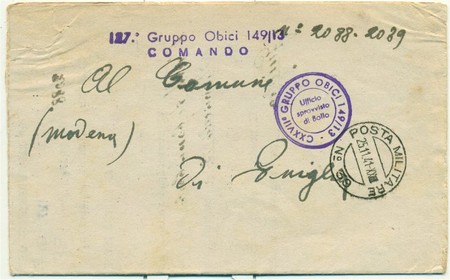 127.° Gruppo Obici 149/13
COMANDO
N° 2088-2089
Al Comune
di Guiglia
(Modena)
CXXVII° GRUPPO OBICI 149/13 -
Ufficio
sprovvisto
di Bollo
POSTA MILITARE
N°
25.11.41.XX